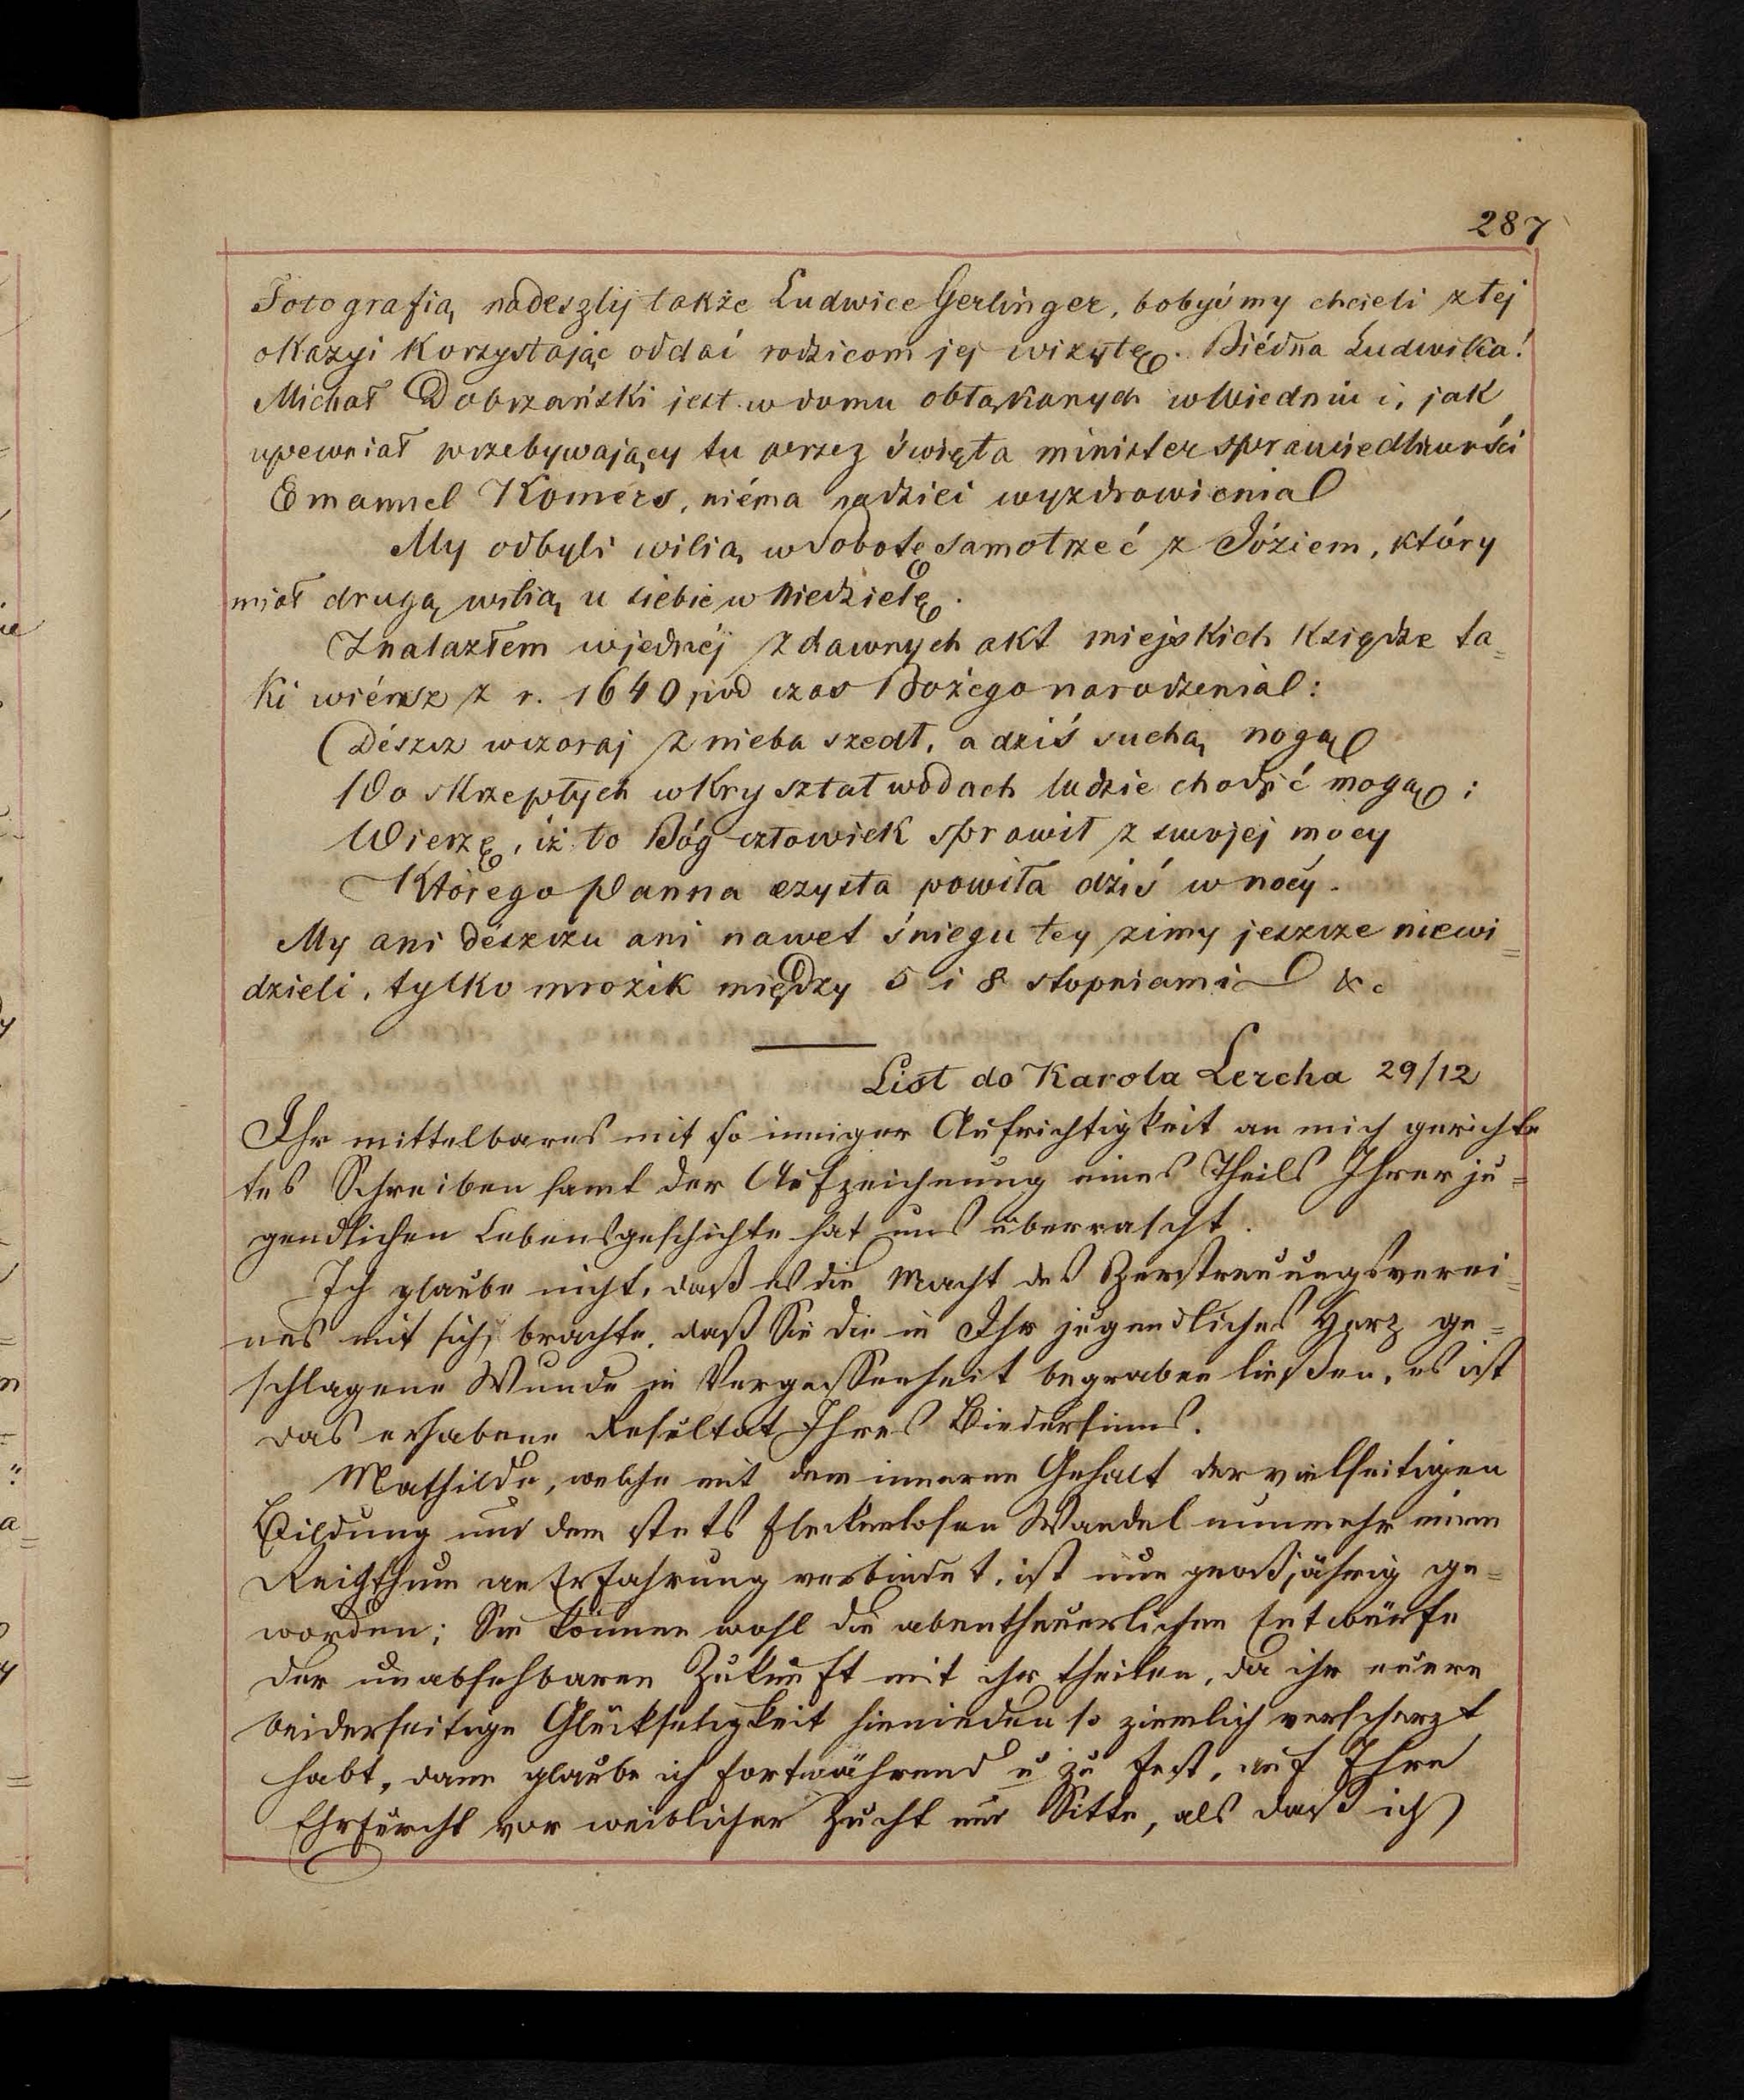 287
Fotografią nadeszlij także Ludwice Gerlinger, bobyśmy chcieli z tej
okazyi korzystając oddać rodzicom jej wizytę. Biédna Ludwika!
Michał Dobrzański jest w domu obłąkanych w Wiedniu i, jak
upewniał przebywający tu przez święta minister sprawiedliwości
Emanuel Komers, niéma nadziei wyzdrowienia
My odbyli wilią w Sobotę samotrzeć z Józiem, który
miał drugą wilią u siebie w Niedzielę.
Znalazłem w jednéj z dawnych akt miejskich księdze ta=
ki wiérsz z r. 1640 pod czas Bożego narodzenia:
Dészcz wczoraj z nieba szedł, a dziś suchą nogą
Po skrzepłych w kryształ wodach ludzie chodzić mogą;
Wierzę, iż to Bóg człowiek sprawił z swojej mocy
Którego Panna czysta powiła dziś w nocy.
My ani dészczu ani nawet śniegu tey zimy jeszcze niewi=
dzieli, tylko mrozik między 5 i 8 stopniami &c
List do Karola Lercha 29/12
Ihr mittelbares mit so inniger Aufrichtigkeit an mich gerichte
tes Schreiben samt der Aufzeichnung eines Theils Ihrer ju=
gendlichen Lebensgeschichte hat uns überrascht.
Ich glaube nicht, daß es die Macht des Zerstreuungsverei=
nes mit sich brachte, daß Sie die in Ihr jugendliches Herz ge=
schlagene Wunde in Vergessenheit begraben ließen, es ist
das erhabene Resultat Ihres Biedersinns.
Mathilde, welche mit dem inneren Gehalt der vielseitigen
Bildung und dem stets fleckenlosen Wandel nunmehr einen
Reichthum an Erfahrung verbindet, ist nun großjährig ge=
worden; Sie können wohl die abentheuerlichen Entwürfe
der unabsehbaren Zukunft mit ihr theilen, da ihr euere
beiderseitige Glückseligkeit hienieden so ziemlich verscherzt
habt, dann glaube ich fortwährend u zu fest, auf Ihre
Ehrfurcht vor weiblicher Zucht und Sitte, als daß ich